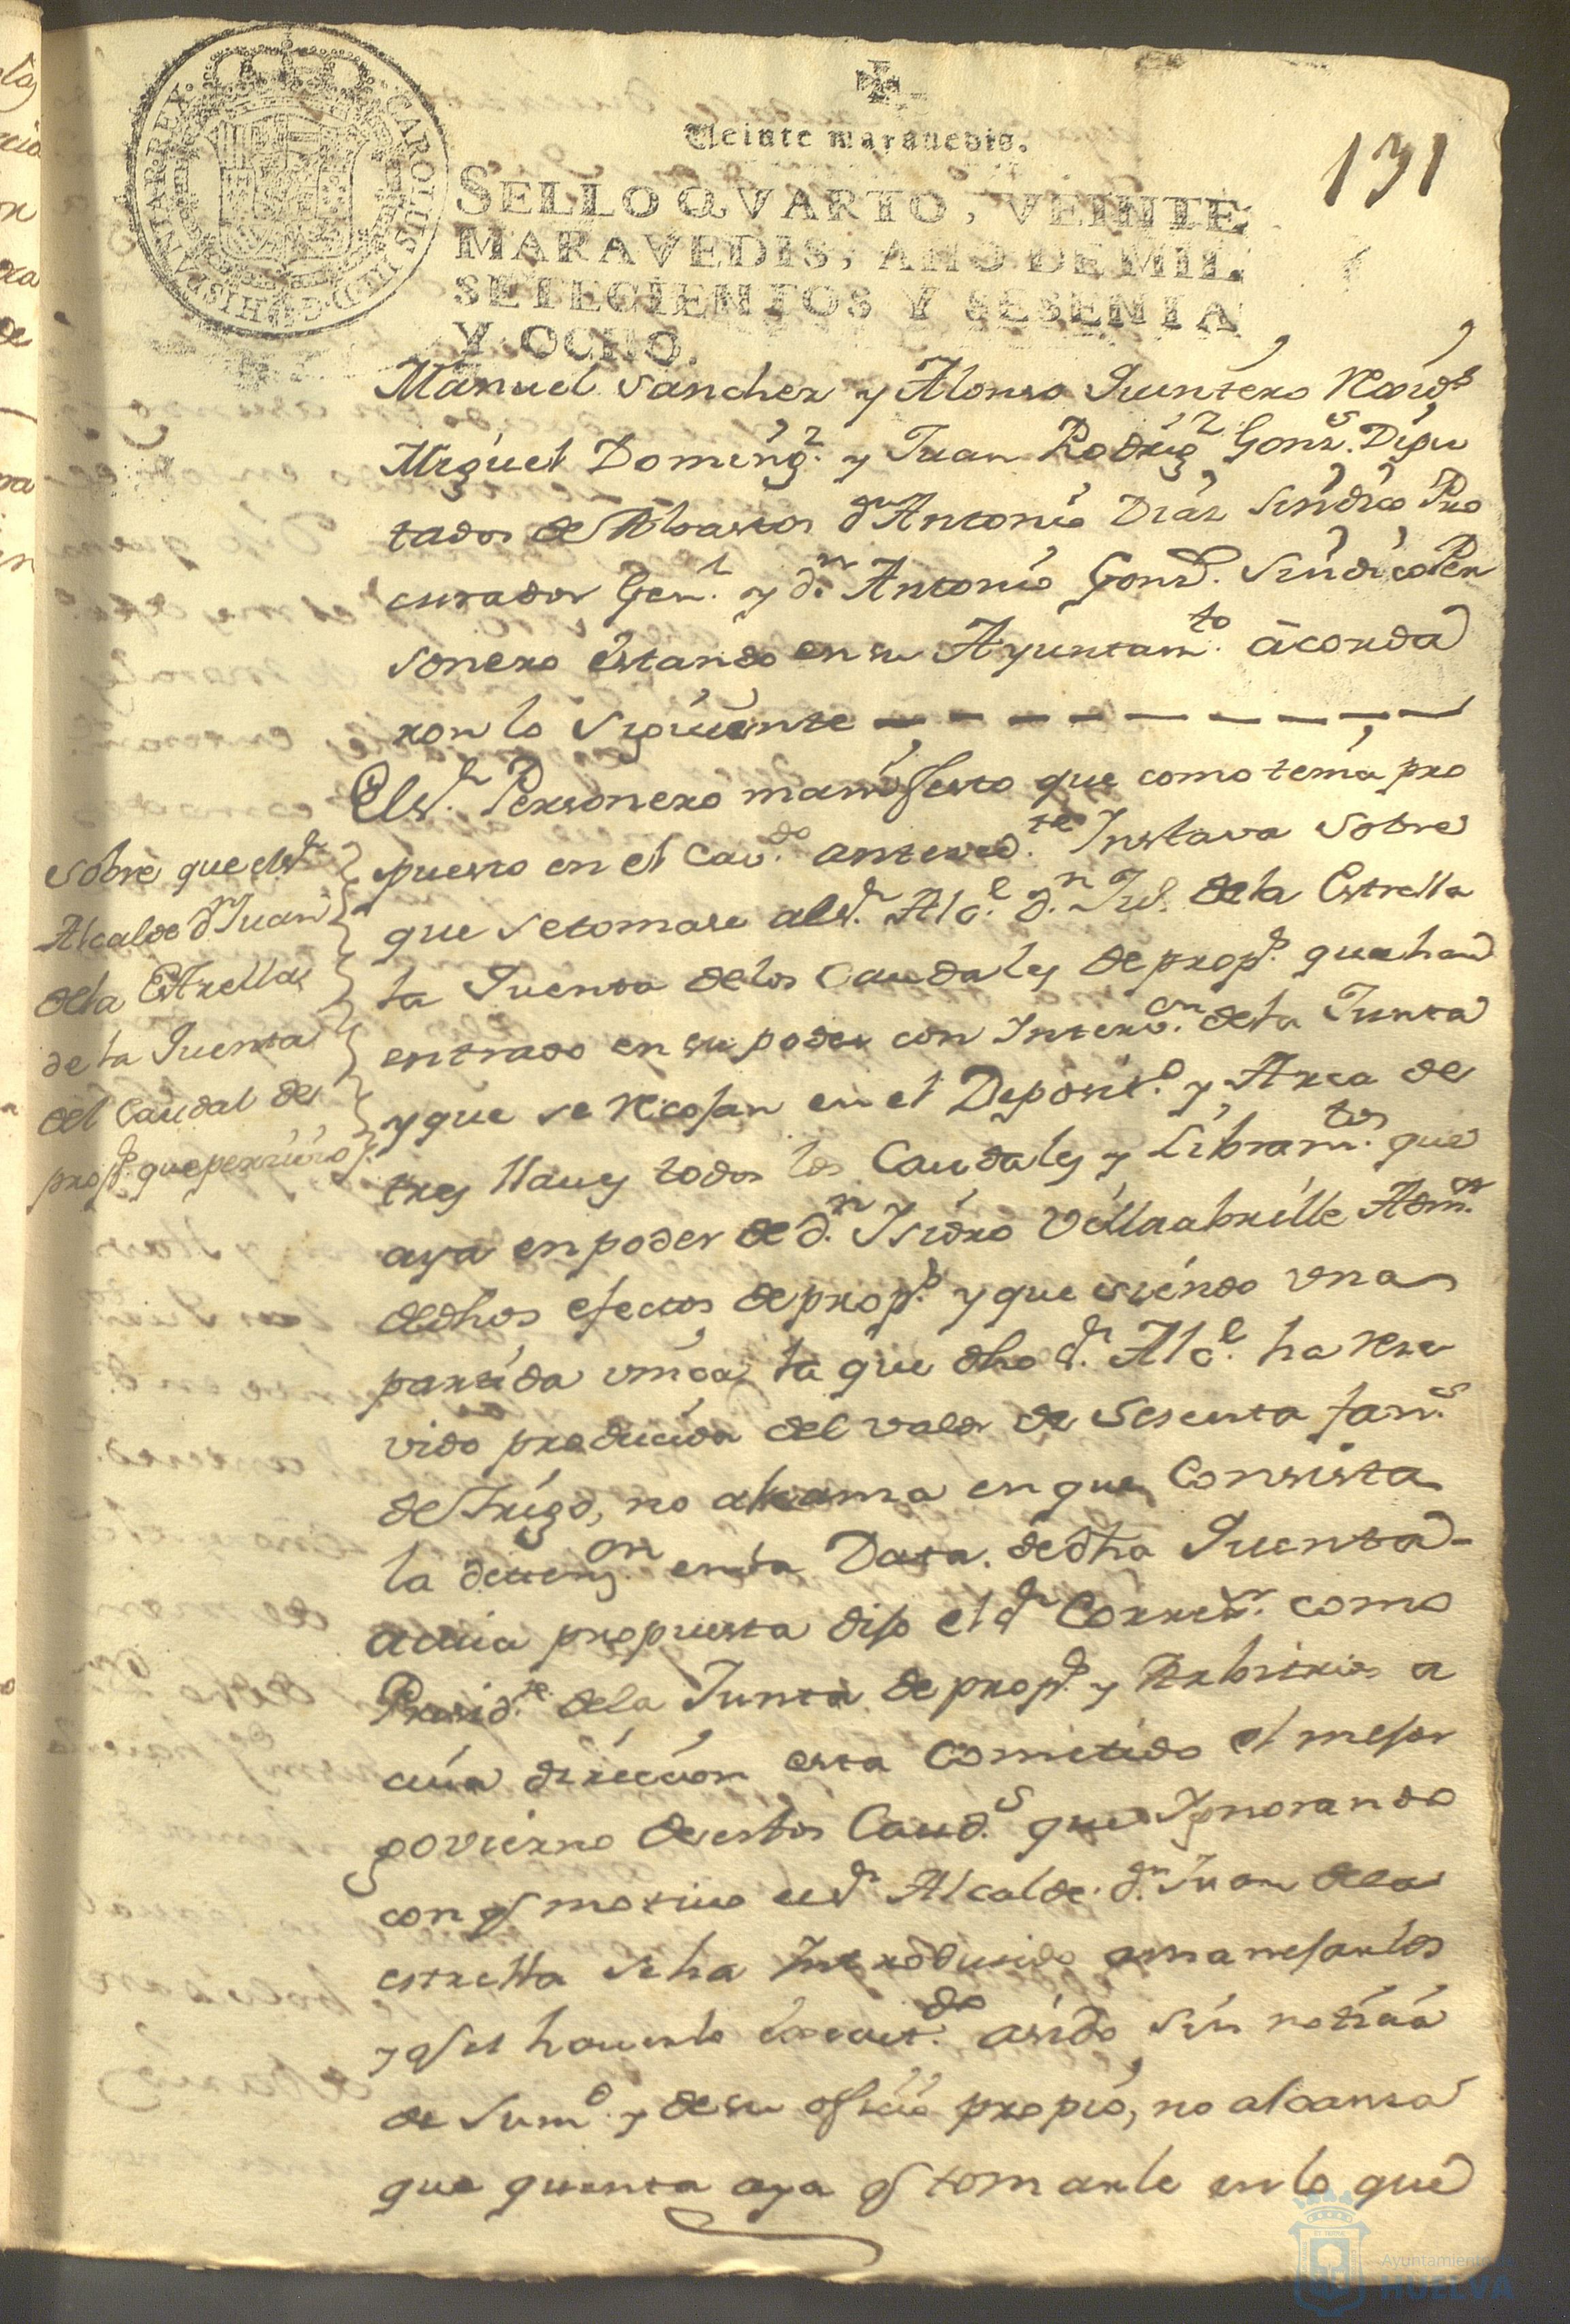 Veinte maravedis.
131
SELLO QVARTO, VEINTE
MARAVEDIS, AÑO DE MIL
SETECIENTOS Y SESENTA
Y OCHO.
CAROLUS III D G HISPANIAR REX
Manuel Sanchez y Alonso Quintero Rexid.s
Miguel Doming.z y Juan Rodrig.z Gonz.s Dipu
tados de Abastos d.n Antonio Diaz Sindico Pro
curador Gen.l y d.n Antonio Gonz. Sindico Per
sonero estando en su Ayuntam.to acorda
ron lo siguiente
El S.r Personero manifesto que como tenia pro
puesto en el Cav.do anteced.te Instava sobre
que se tomase al S.r Alc.e d.n Ju. de la Estrella
la Quenta de los Caudales de prop.s que han
entrado en su poder con Interv.on de la Junta
y que se recojan en el Deposit.o y Arca de
tres llaves todos los Caudales y Libram.tos que
aya en poder de d.n Isidro Villaabrille Adm.or
de dhos efectos de prop.s y que siendo una
partida unica la que dho S.r Alc.e ha resu
vido producida del valor de sesenta fan.s
de trigo, no alcanza en que Consista
la detenz.on en la Data de dha Quenta
a cuia propuesta dijo el S.r Correx.r como
Presid.te de la Junta de prop.s y Arbitrios a
cuia direccion esta cometido el mejor
govierno de estos Caud.s que Ignorando
con q motivo el S.r Alcalde d.n Juan de la
estrella se ha Introducido a manejarlos
y q el haverlo executado a sido sin noticia
de Sum.d y de su oficio propio, no alcanza
que quenta aya q tomarle en lo que
Sobre que el S.r
Alcalde d.n Juan
de la Estrella
de la Quenta
del Caudal de
prop.s que percivio
Ayuntamiento
HUELVA